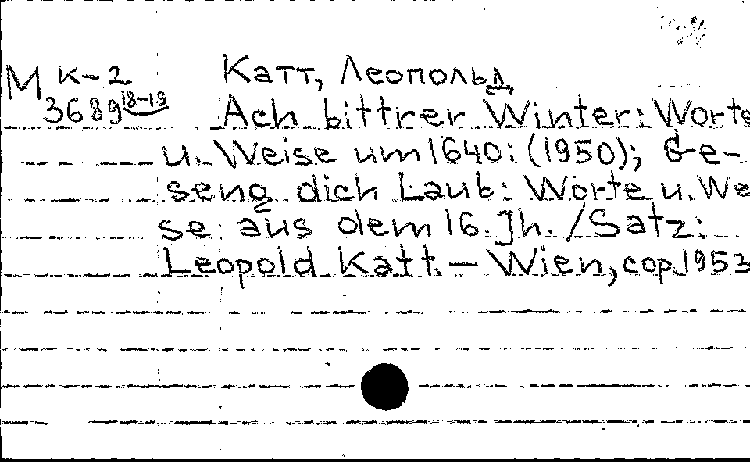 М К-2
3689 18-19
Катт, Леопольд
Ach bittrer Winter: Worte
u. Weise um 1640: (1950); Ge-
seng dich Laub: Worte u. We
se aus dem 16. Jh. / Satz:
Leopold Katt. — Wien, cop. 1953